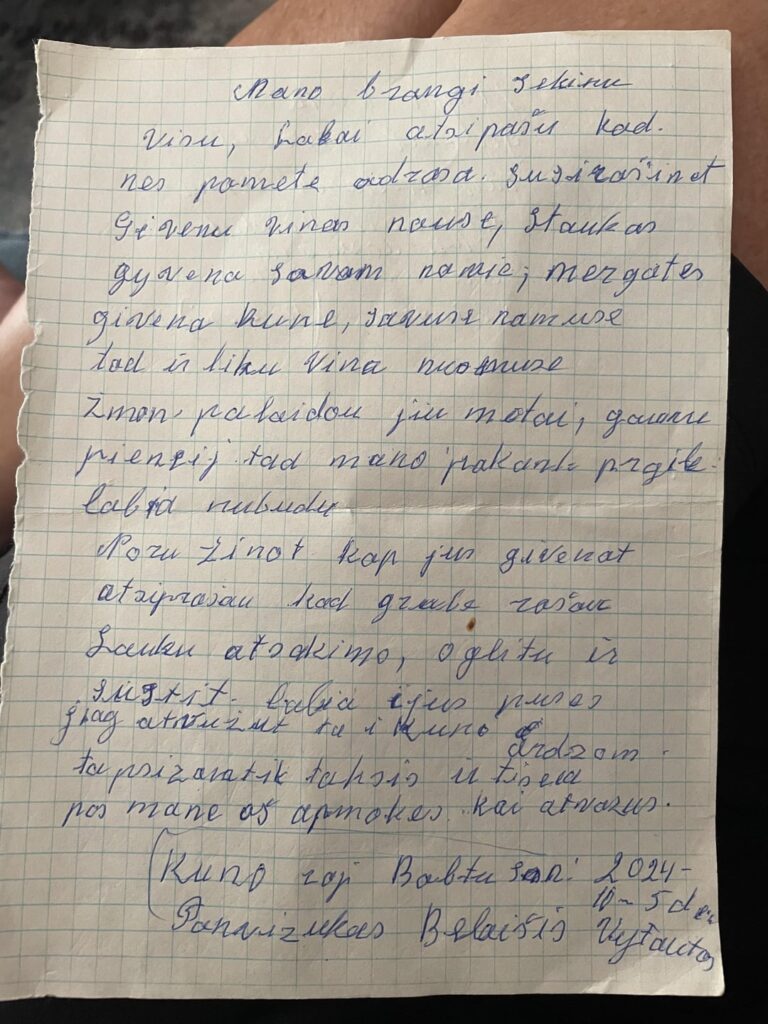 Mano brangi sekinu
visu, Labai atsipašu kad.
nes pamete adrasa. susirašinet
Givenu vinas nause, Staukas
gyvena savam namie, mergates
givena kune, savuse namuse
tad ir liku vina
Žmon palaidou jiu motai, gaunu
piensij tad mano pakant
labia nubudu
Noru Žinot kap jus givenat
atsiprašau kad grabe rašau
Lauku atsakimo, oglitu ir
sustit labia ijus puses
jiag atvužut ta i Kuno
taksis ir tisea
pas mane aš apmokes kai atvazus.
Kuno raji Babtu sen: 2024-
10-5 d
Panvizukas Belaišis Vytautas